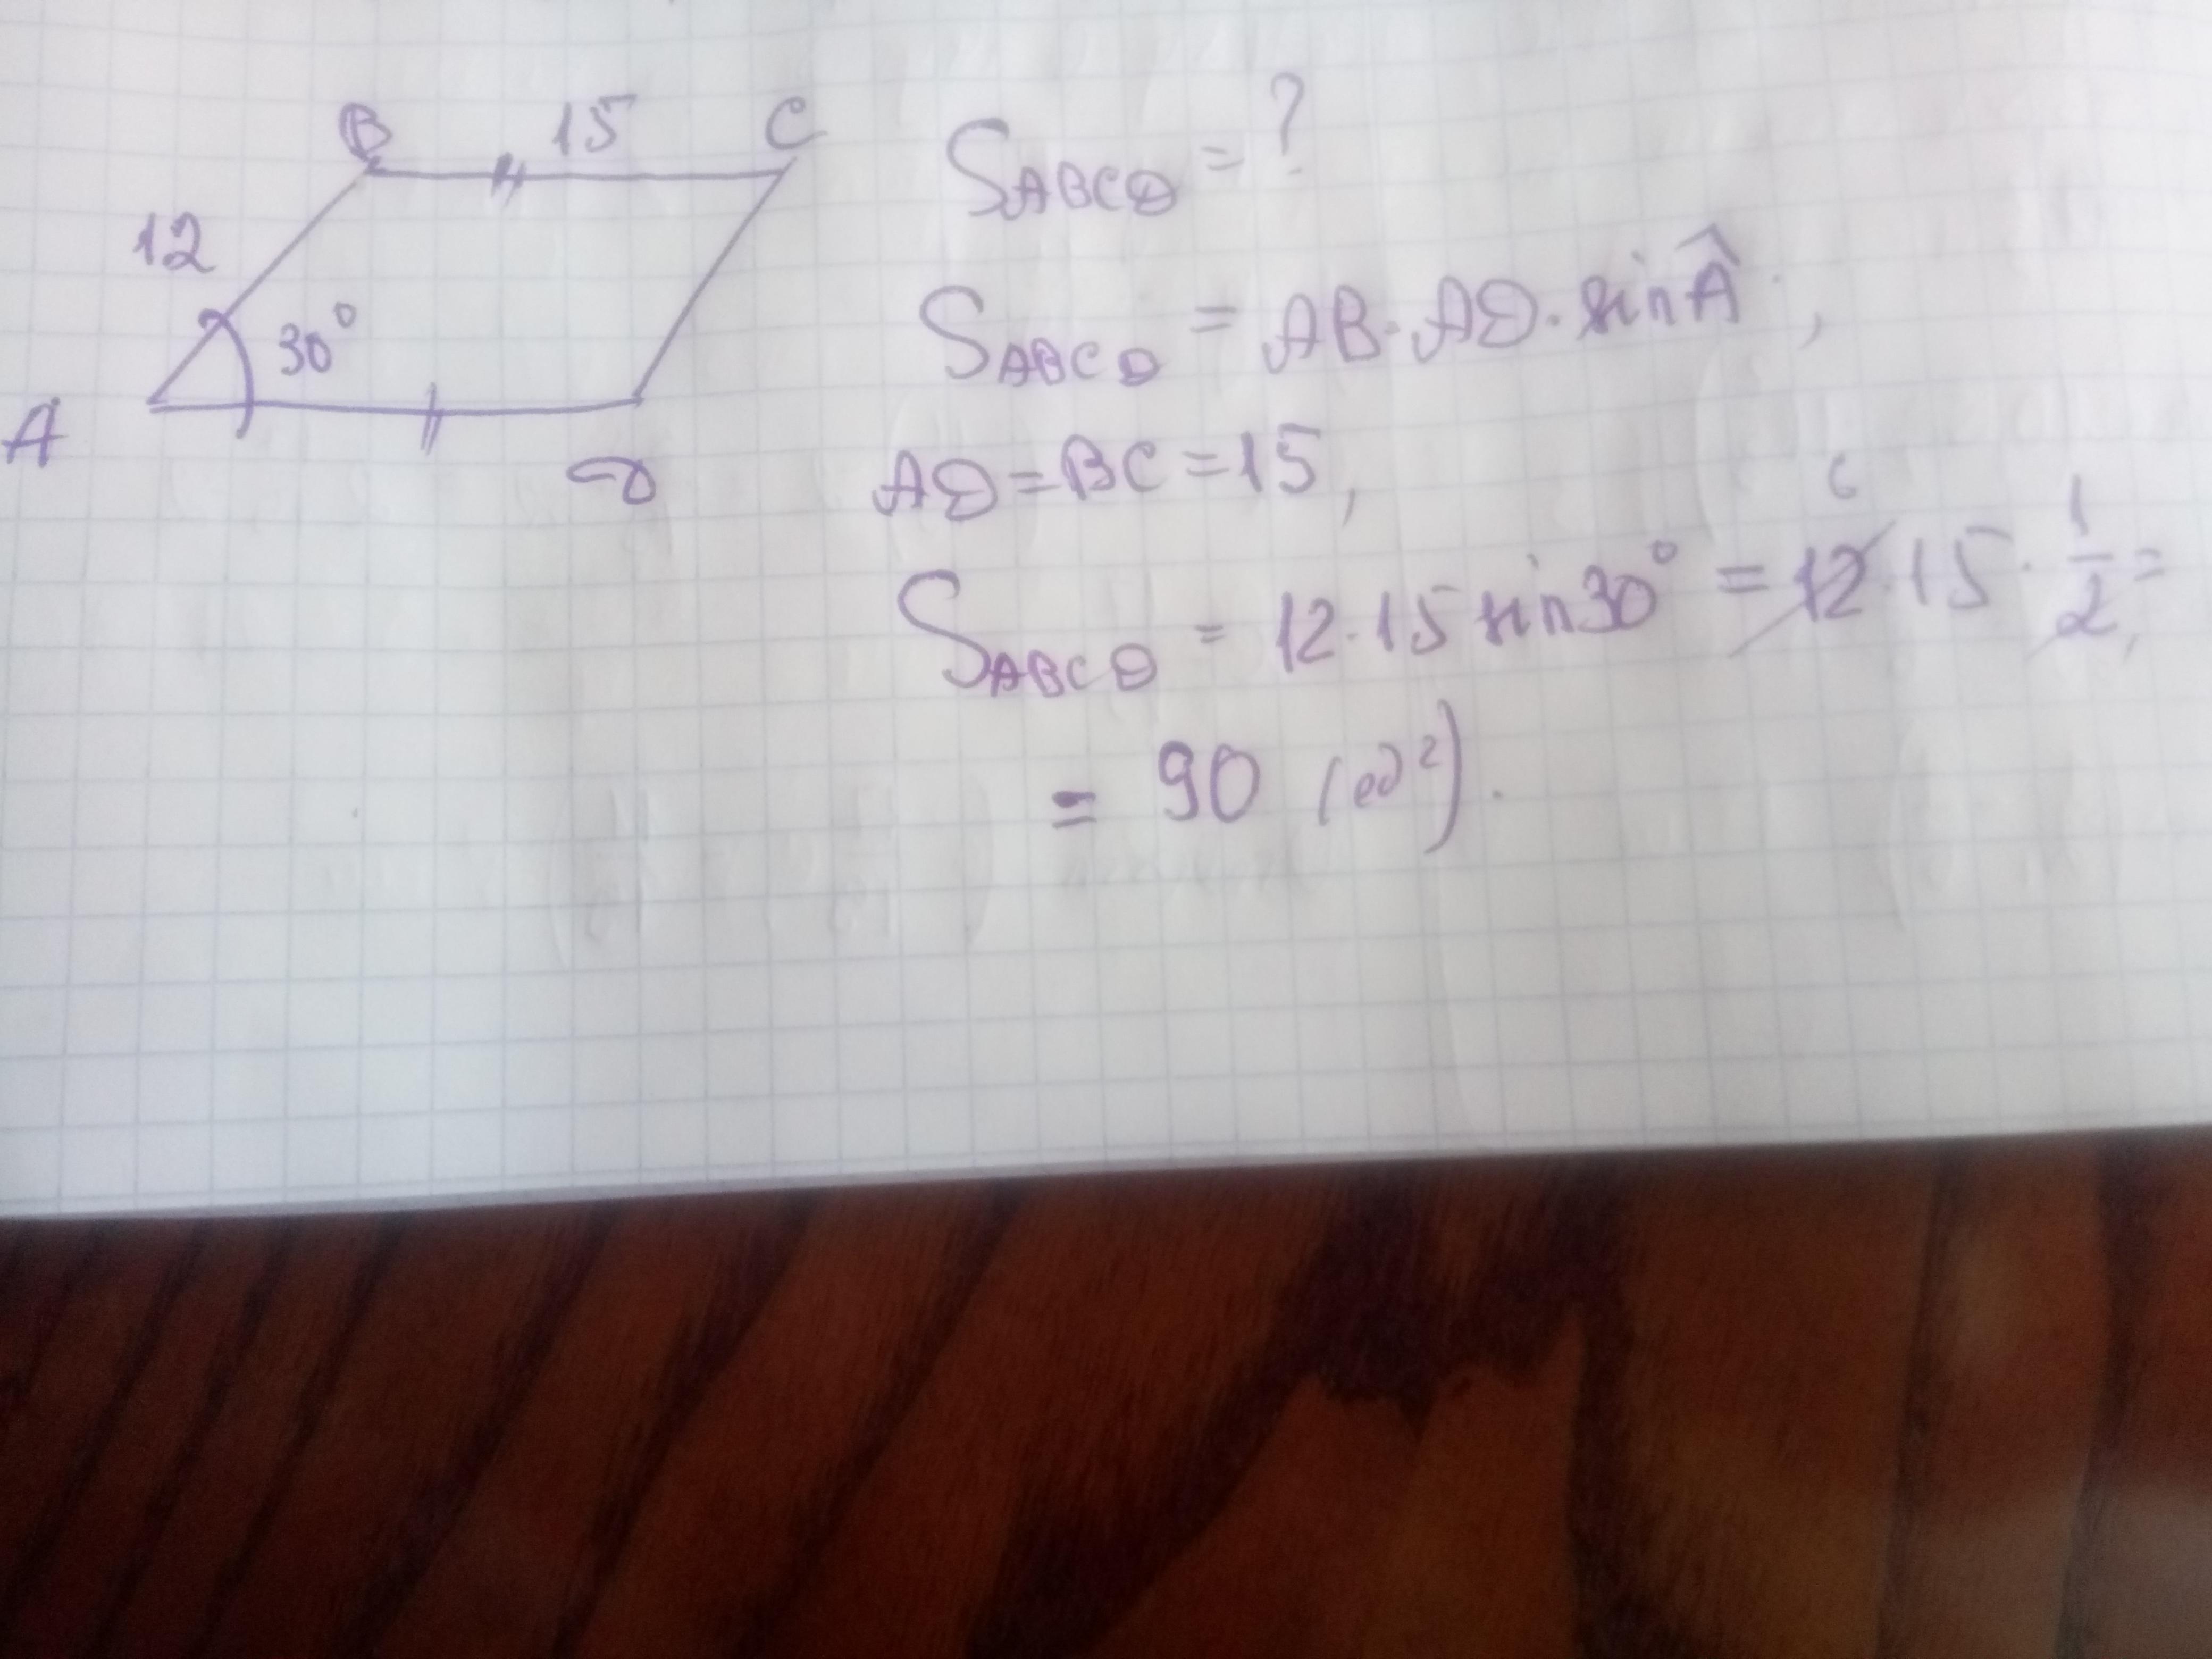 B 15 C
12
30°
A
D
S ABCD = ?
S ABCD = AB · AD · sin Â,
AD = BC = 15,
6
S ABCD = 12 · 15 sin 30° = 12 · 15 · 1/2 =
= 90 (ед²).